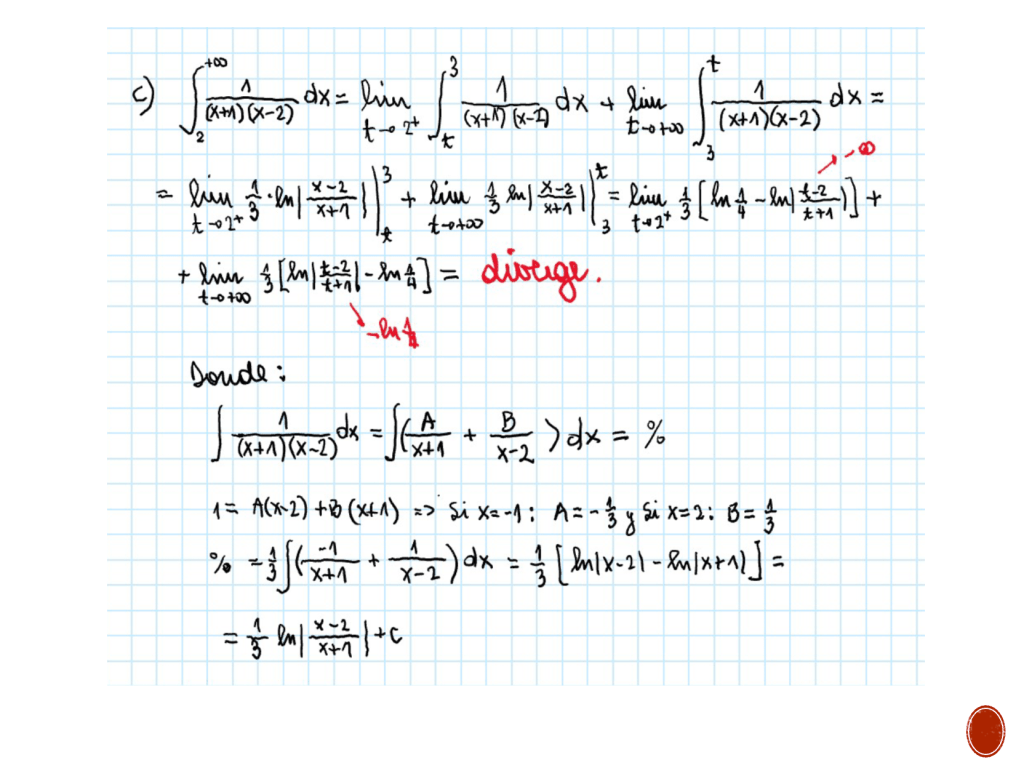 c) ∫₂^{+∞} 1/((x+1)(x-2)) dx = lim_{t→2⁺} ∫_t^3 1/((x+1)(x-2)) dx + lim_{t→+∞} ∫_3^t 1/((x+1)(x-2)) dx =
= lim_{t→2⁺} 1/3 · ln|(x-2)/(x+1)| |_t^3 + lim_{t→+∞} 1/3 ln|(x-2)/(x+1)| |_3^t = lim_{t→2⁺} 1/3 [ln 1/4 - ln|(t-2)/(t+1)|] + → -∞
+ lim_{t→+∞} 1/3 [ln|(t-2)/(t+1)| - ln 1/4] = diverge.
Donde:
∫ 1/((x+1)(x-2)) dx = ∫ (A/(x+1) + B/(x-2)) dx = %
1 = A(x-2) + B(x+1) => Si x=-1: A = -1/3 y Si x=2: B = 1/3
% = 1/3 ∫ (-1/(x+1) + 1/(x-2)) dx = 1/3 [ln|x-2| - ln|x+1|] =
= 1/3 ln|(x-2)/(x+1)| + C